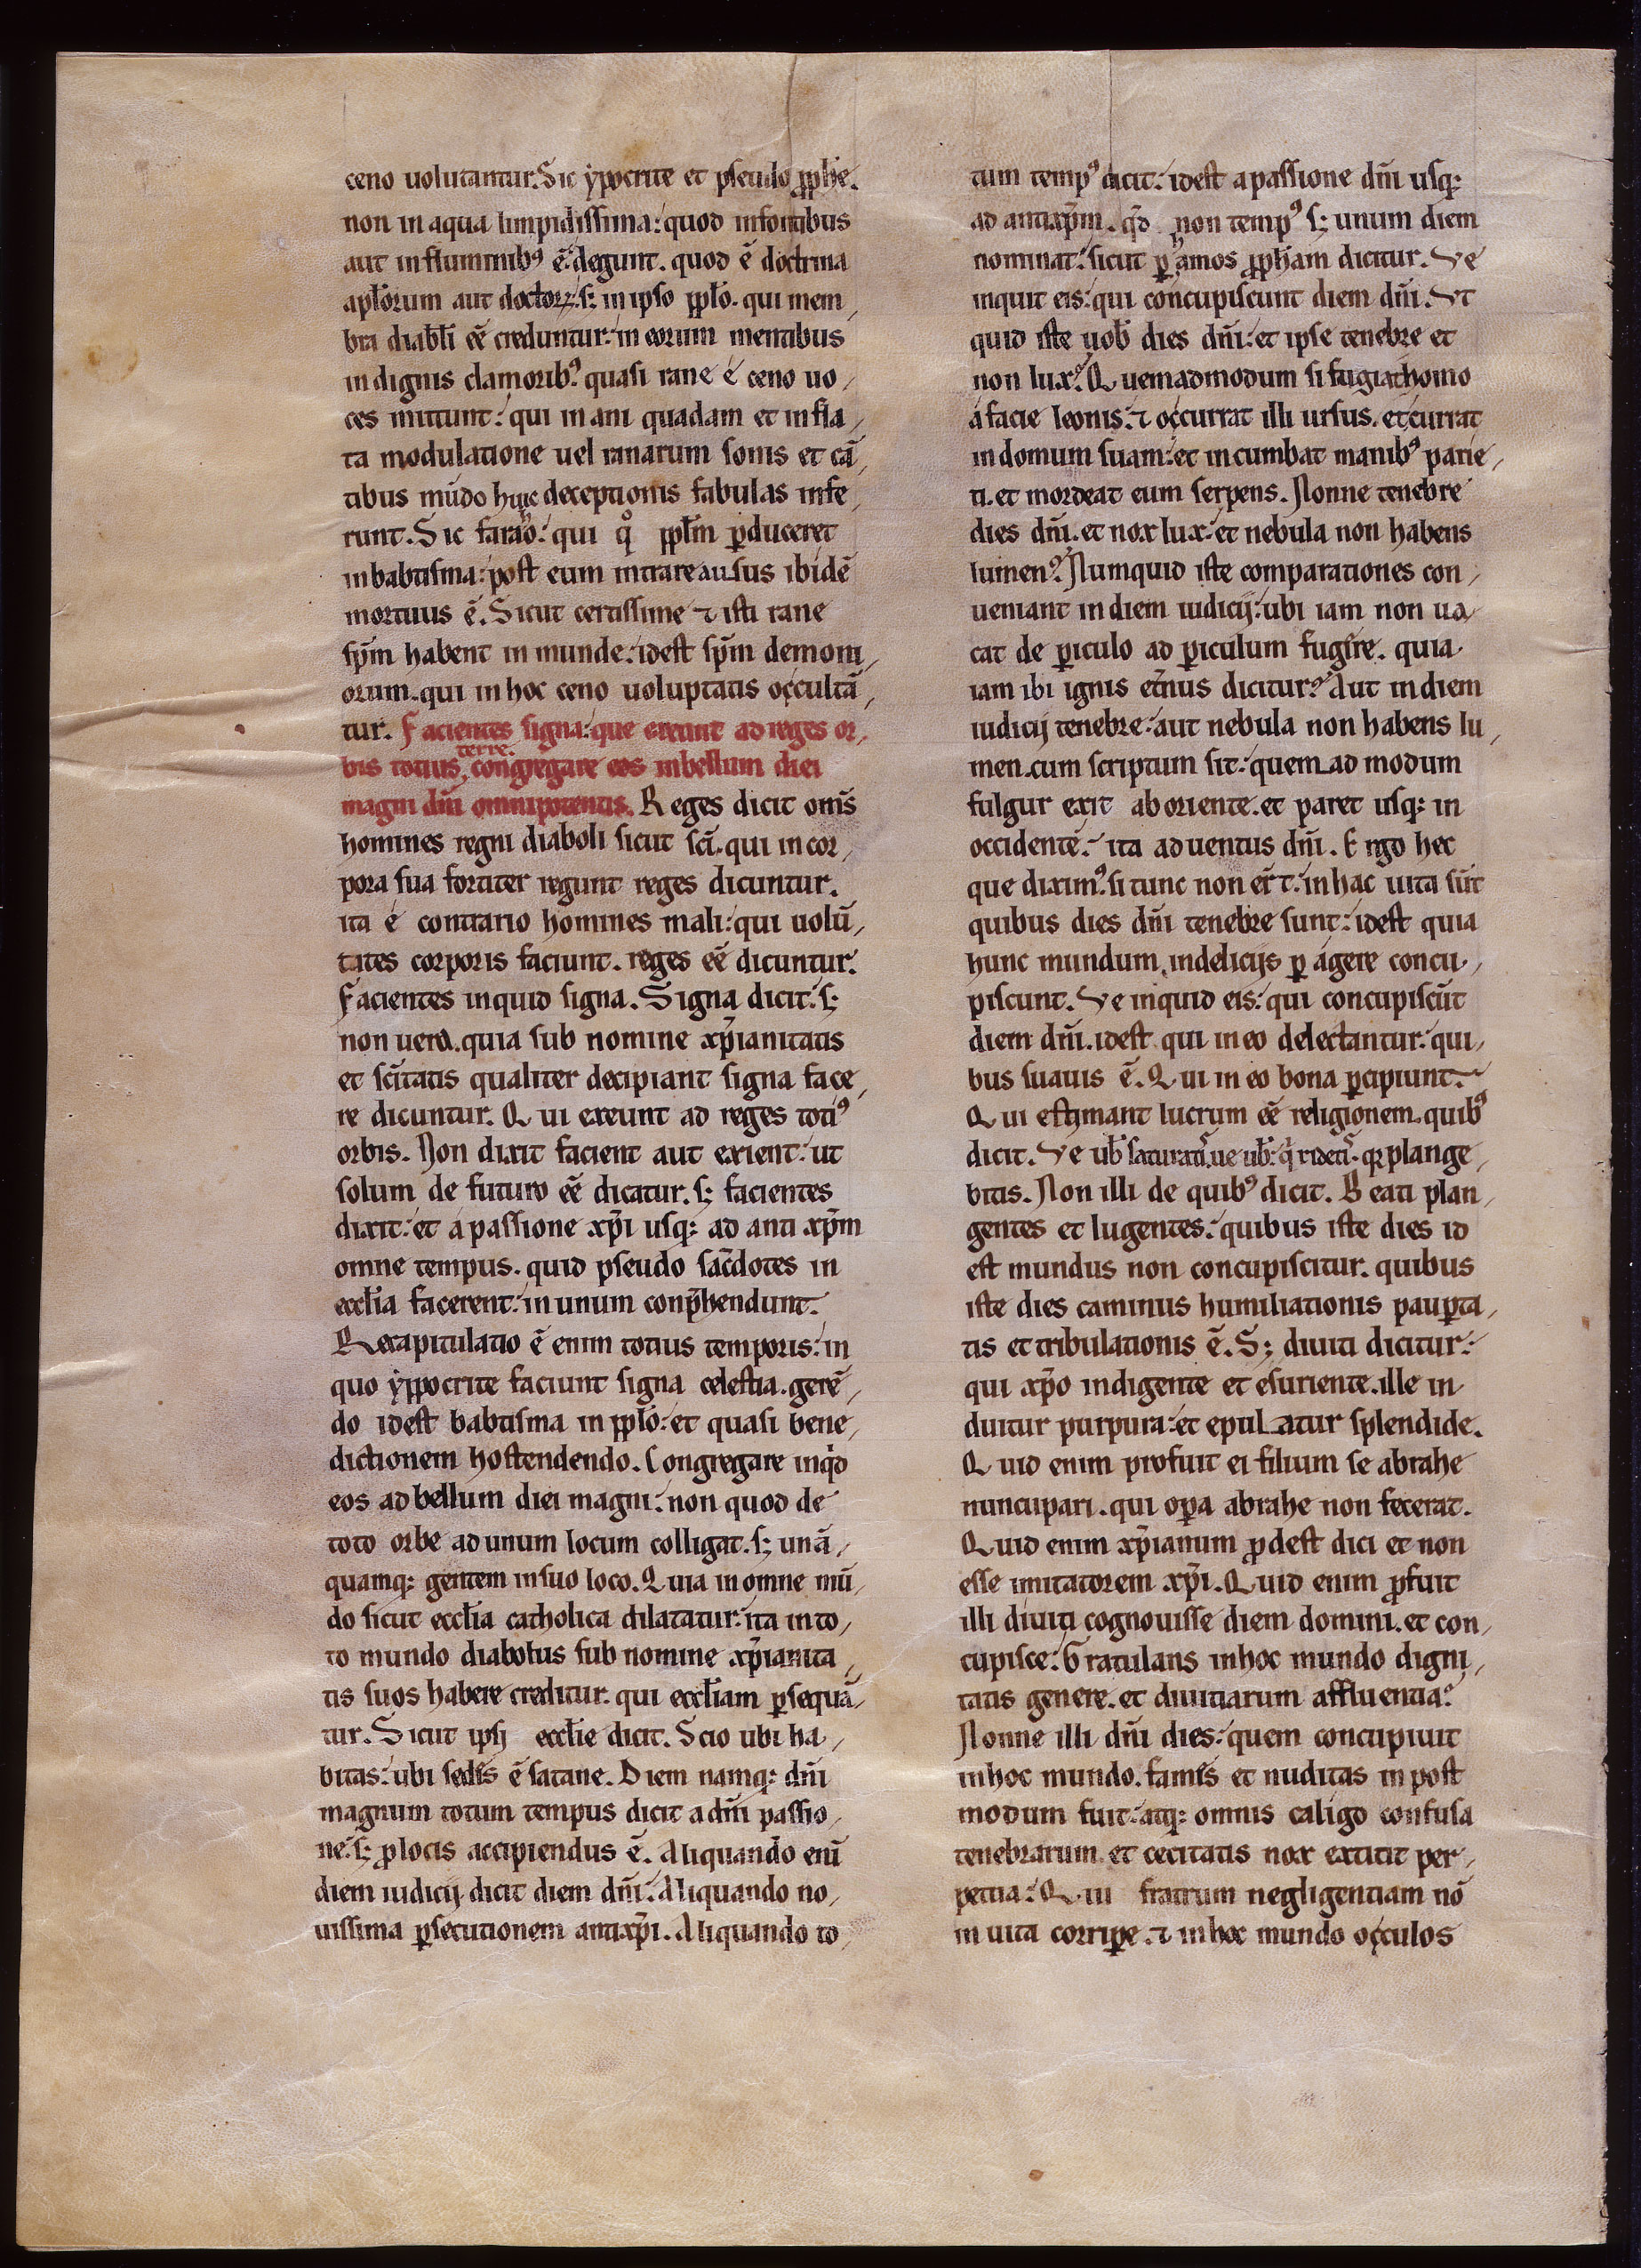 ceno uolutantur. Sic ẏpocrite et pseudo ꝓphe.
non in aqua limpidissima: quod in fontibus
aut in fluminibꝰ ē. degunt. quod ē doctrina
apłorum aut doctoꝝ. s; in ipso ppło. qui mem
bra diabłi eē creduntur: in eorum mentibus
in dignis clamoribꝰ quasi rane é ceno uo
ces mittunt: qui in ani quadam et infla
ta modulatione uel ranarum sonis et cā
tibus mūdo huic deceptionis fabulas infe
runt. Sic farao: qui qͦ ppłm ꝑduceret
in babtisma: post eum intrare ausus ibidē
mortuus ē. Sicut certissime ⁊ isti rane
sp̄m habent in munde: id est sp̄m demoni
orum. qui in hoc ceno uoluptatis occultā
tur. Facientes signa: que exeunt ad reges or
bis totius terre. congregare eos in bellum diei
magni dn̄i omnipotentis. Reges dicit om̄s
homines regni diaboli sicut sc̄i. qui in cor
pora sua fortiter regunt reges dicuntur.
ita é contrario homines mali: qui uolū
tates corporis faciunt. reges eē dicuntur.
Facientes inquid signa. Signa dicit: s;
non uera. quia sub nomine xp̄ianitatis
et sc̄itatis qualiter decipiant signa face
re dicuntur. Qui exeunt ad reges totiꝰ
orbis. Non dixit facient aut exient: ut
solum de futuro eē dicatur. s; facientes
dixit: et á passione xp̄i usq; ad anti xp̄m
omne tempus. quid pseudo sac̄dotes in
eccłia facerent: in unum conp̄hendunt.
Recapitulatio ē enim totius temporis: in
quo ẏppocrite faciunt signa celestia. gerē
do id est babtisma in ppło: et quasi bene
dictionem hostendendo. Congregare inqͥd
eos ad bellum diei magni: non quod de
toto orbe ad unum locum colligat. s; unā
quamq; gentem in suo loco. Quia in omne mū
do sicut eccłia catholica dilatatur: ita in to
to mundo diabolus sub nomine xp̄ianita
tis suos habere creditur. qui eccłiam ꝑsequā
tur. Sicut ipsi eccłie dicit. Scio ubi ha
bitas: ubi sedis ē satane. Diem namq; dn̄i
magnum totum tempus dicit a dn̄i passio
ne. s; ꝓ locis accipiendus ē. Aliquando enī
diem iudicij dicit diem dn̄i: Aliquando no
uissima ꝑsecutionem antixp̄i. Aliquando to
tum tempꝰ dicit: id est a passione dn̄i usq;
ad antixp̄m. qd̄ non tempꝰ s; unum diem
nominat: sicut ꝑ amos ꝓpħam dicitur. Ve
inquit eis: qui concupiscunt diem dn̄i. Vt
quid iste uob̄ dies dn̄i: et ipse tenebre et
non lux? Quemadmodum si fugiat homo
á facie leonis: ⁊ occurrat illi ursus. et currat
in domum suam: et in cumbat manibꝰ parie
ti. et mordeat eum serpens. Nonne tenebre
dies dn̄i. et nox lux: et nebula non habens
lumen? Numquid iste comparationes con
ueniant in diem iudicij: ubi iam non ua
cat de ꝑiculo ad ꝑiculum fugire. quia
iam ibi ignis et̄nus dicitur? Aut in diem
iudicij tenebre: aut nebula non habens lu
men. cum scriptum sit: quem ad modum
fulgur exit ab oriente. et paret usq; in
occidente: ita aduentus dn̄i. Ergo hec
que diximꝰ. si tunc non er̄t. in hac uita sūt
quibus dies dn̄i tenebre sunt: id est quia
hunc mundum, in delicijs ꝑ agere concu
piscunt. Ve inquid eis: qui concupiscūt
diem dn̄i. id est qui in eo delectantur: qui
bus suauis ē. Qui in eo bona ꝑcipiunt.
Qui estimant lucrum eē religionem. quibꝰ
dicit. Ve ub̄ saturati. ue ub̄: qͥ rideti. qꝛ plange
bitis. Non illi de quibꝰ dicit. Beati plan
gentes et lugentes: quibus iste dies id
est mundus non concupiscitur. quibus
iste dies caminus humiliationis pauꝑta
tis et tribulationis ē. S; diuiti dicitur:
qui xp̄o indigente et esuriente. ille in
duitur purpura: et epulatur splendide.
Quid enim profuit ei filium se abrahe
nuncupari. qui oꝑa abrahe non fecerat.
Quid enim xp̄ianum ꝓdest dici et non
esse imitatorem xp̄i. Quid enim ꝓfuit
illi diuiti cognouisse diem domini. et con
cupisce: Gratulans in hoc mundo digni
tatis genere. et diuitiarum affluentia?
Nonne illi dn̄i dies: quem concupiuit
in hoc mundo. famis et nuditas in post
modum fuit: atq; omnis caligo confusa
tenebrarum. et cecitatis nox extitit per
petua: Qui fratrum negligentiam nō
in uita corriꝑe. ⁊ in hoc mundo occulos